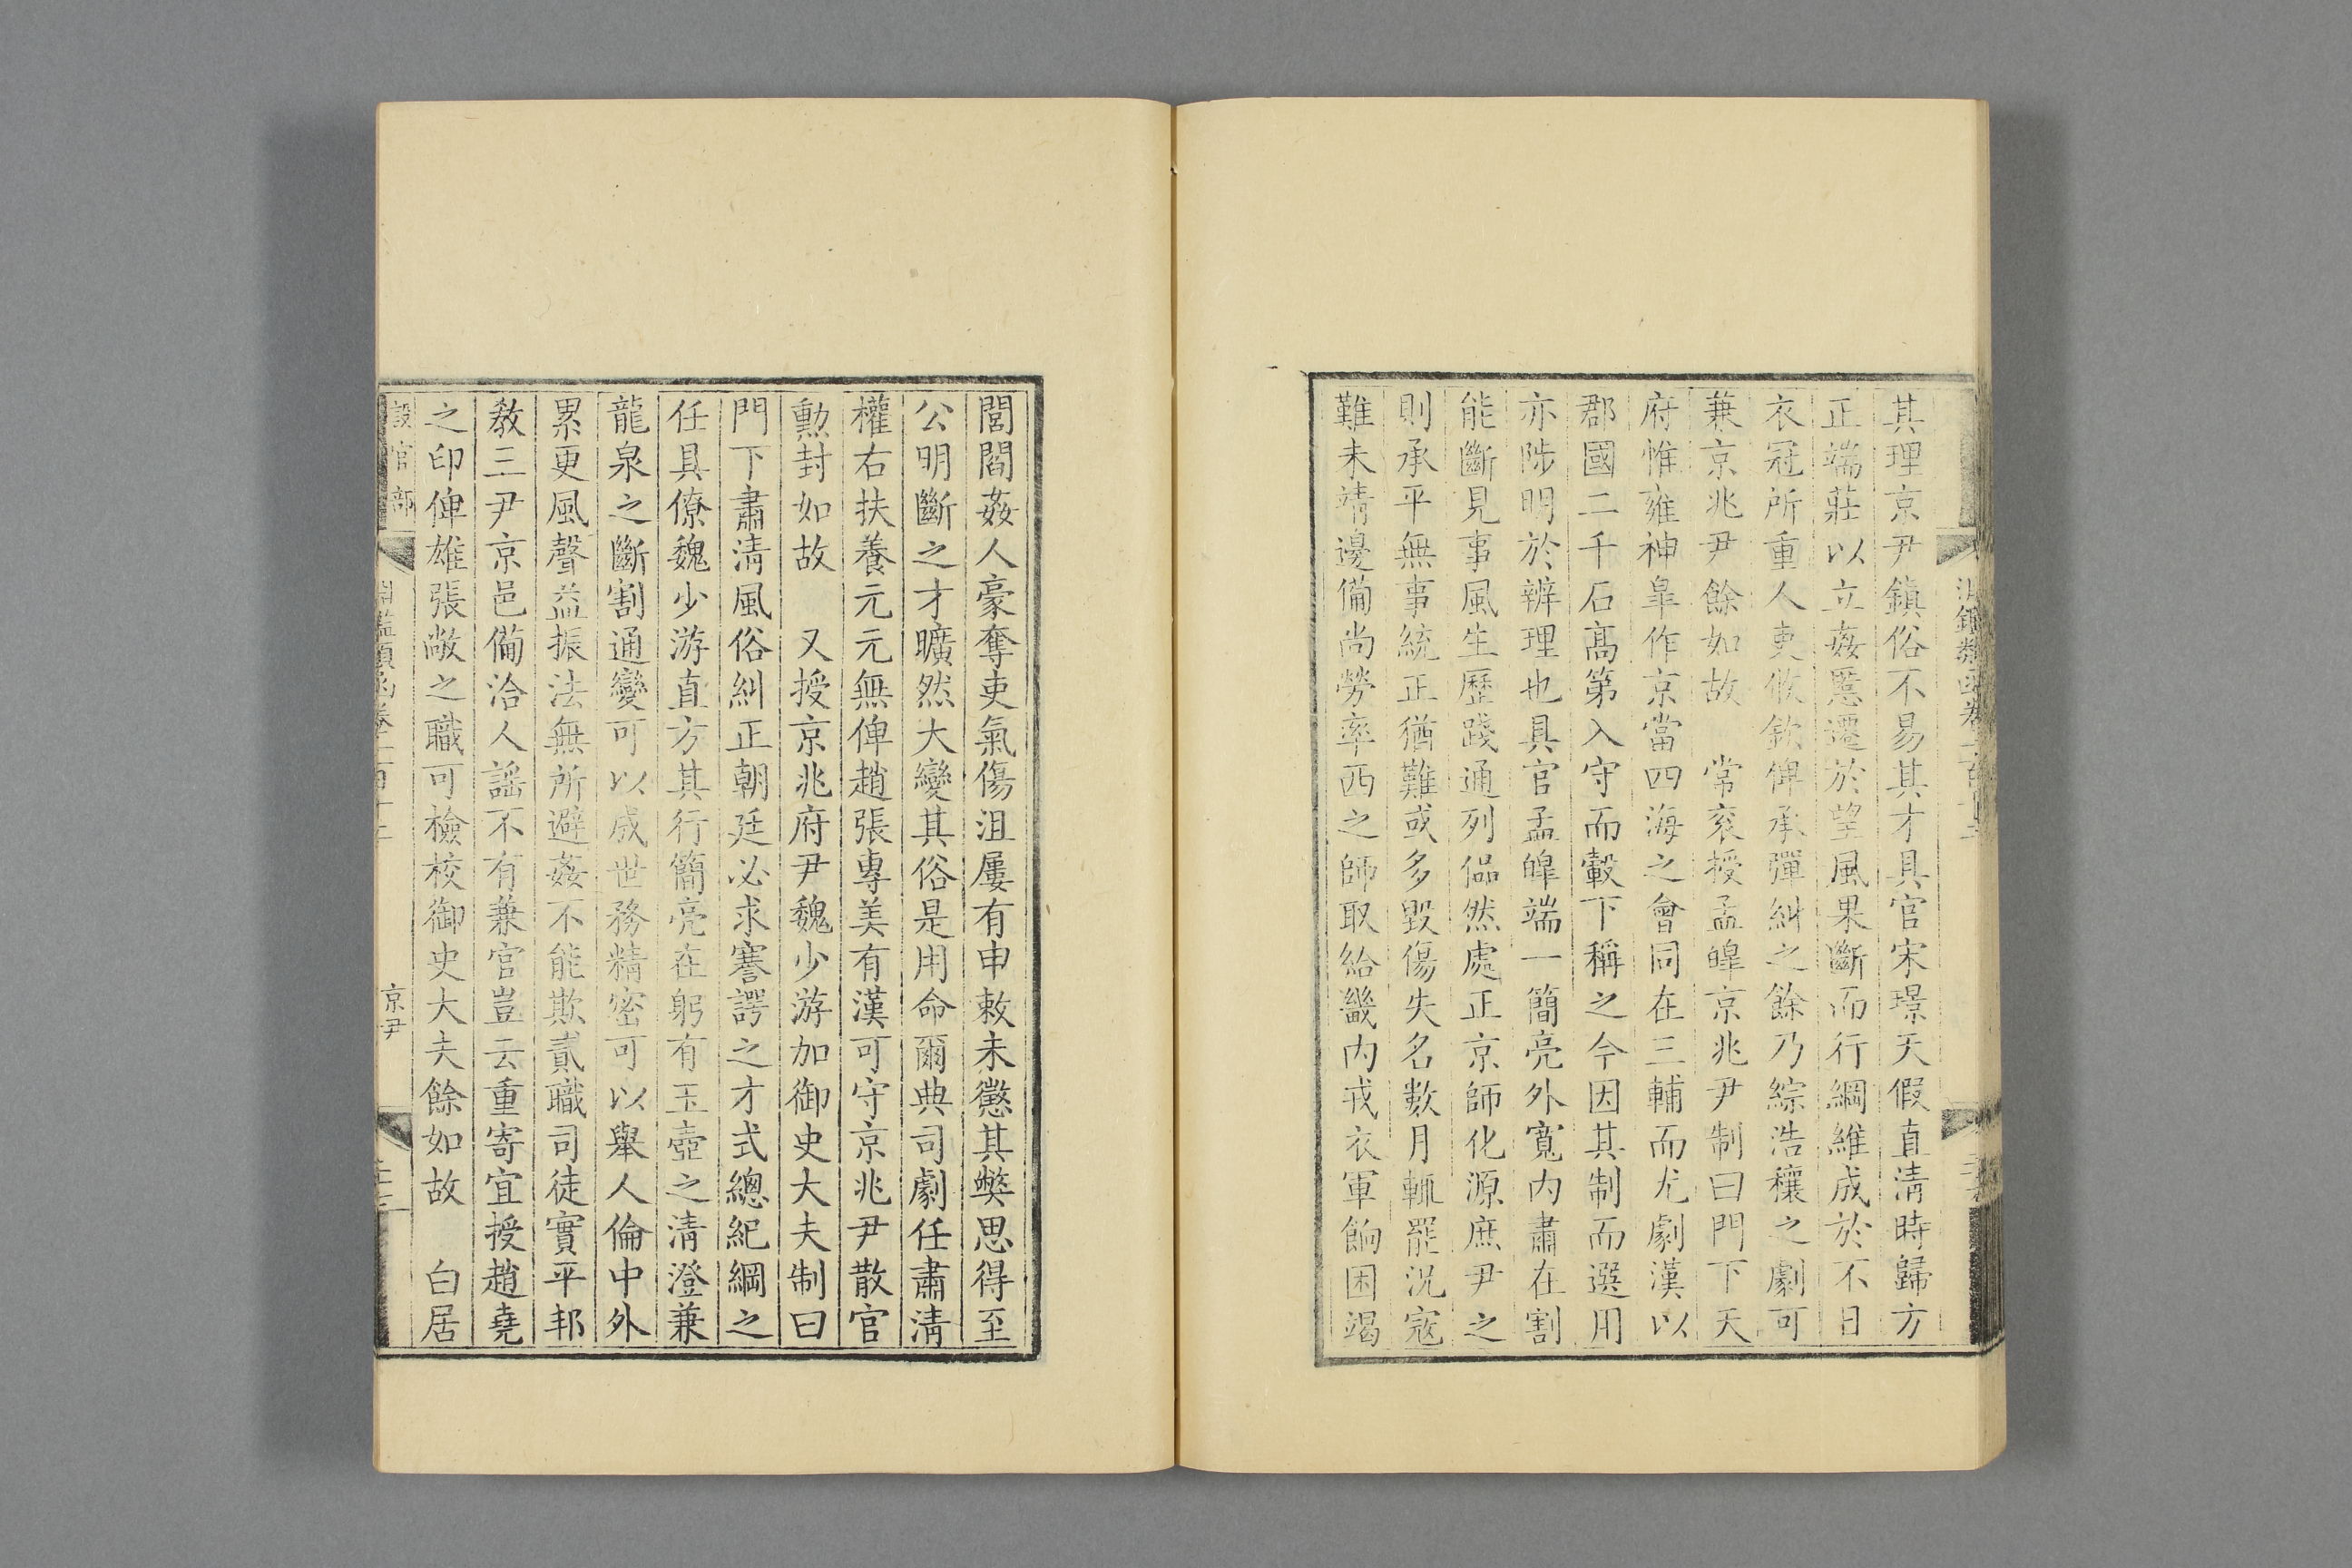 其理京尹鎮俗不易其才具官宋璟天假直淸時歸方
正端莊以立姦慝遷於望風果斷而行綱維成於不日
衣冠所重人吏攸欽俾承彈糾之餘乃綜浩穰之劇可
兼京兆尹餘如故　常袞授孟皥京兆尹制曰門下天
府惟雍神臯作京當四海之會同在三輔而尤劇漢以
郡國二千石髙第入守而轂下稱之今因其制而選用
亦陟明於辨理也具官孟皥端一簡亮外寛内肅在割
能斷見事風生歷踐通列偘然處正京師化源庶尹之
則承平無事統正猶難或多毀傷失名數月輒罷況寇
難未靖邊備尚勞率西之師取給畿内戎衣軍餉困竭
閭閻姦人豪奪吏氣傷沮屢有申敕未懲其弊思得至
公明斷之才曠然大變其俗是用命爾典司劇任肅淸
權右扶養元元無俾趙張專美有漢可守京兆尹散官
勲封如故　又授京兆府尹魏少游加御史大夫制曰
門下肅淸風俗糾正朝廷必求謇諤之才式總紀綱之
任具僚魏少游直方其行簡亮在躬有玉壺之淸澄兼
龍泉之斷割通變可以成世務精密可以舉人倫中外
累更風聲益振法無所避姦不能欺貳職司徒實平邦
敎三尹京邑備洽人謡不有兼官豈云重寄宜授趙堯
之印俾雄張敞之職可檢校御史大夫餘如故　白居
設官部
京尹